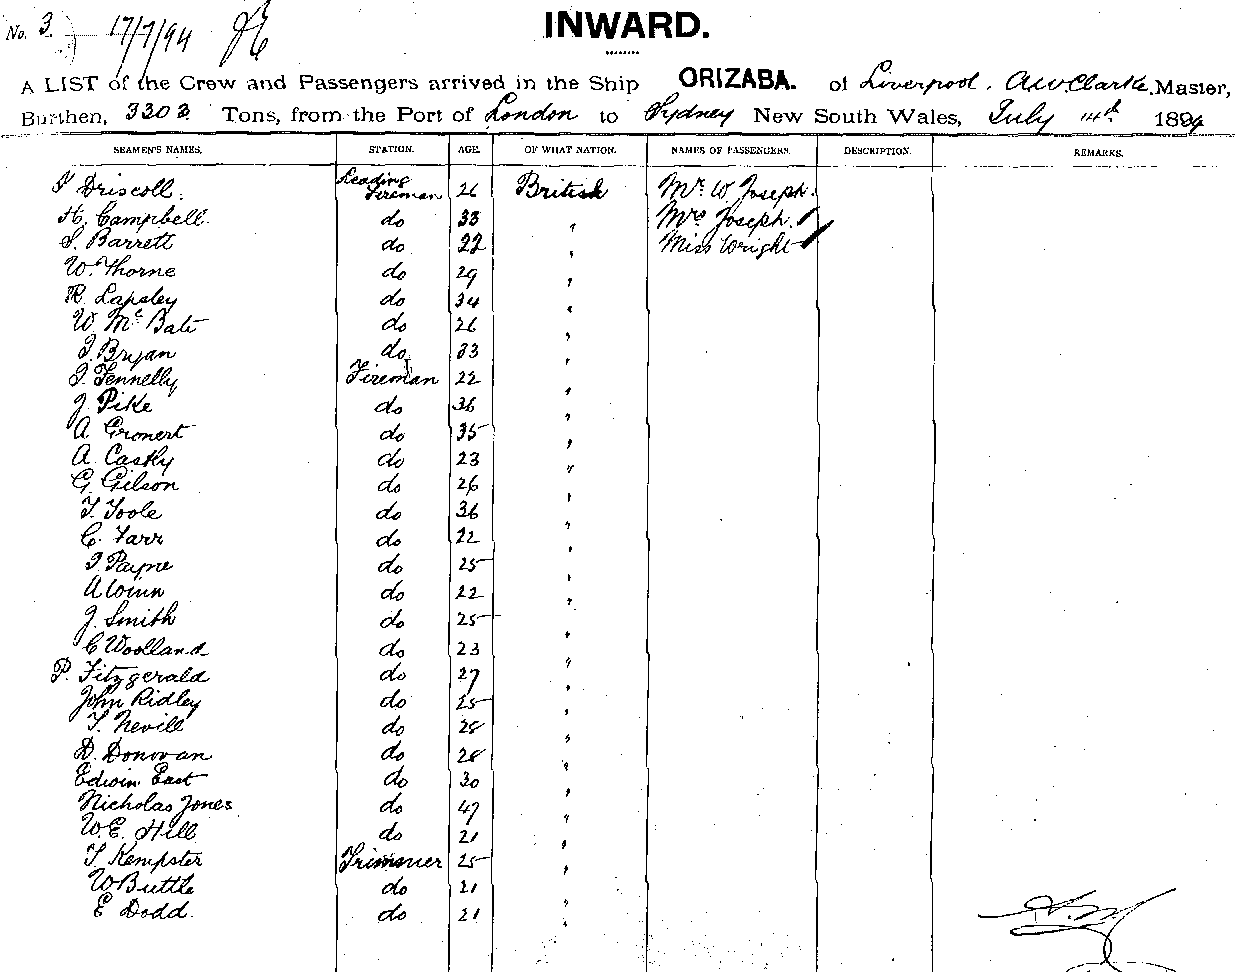 No. 3. 17/7/94
INWARD.
A LIST of the Crew and Passengers arrived in the Ship ORIZABA. of Liverpool. A.W. Clarke. Master,
Burthen, 3303 Tons, from the Port of London to Sydney New South Wales, July 14th 1894
SEAMEN'S NAMES. STATION. AGE. OF WHAT NATION. NAMES OF PASSENGERS. DESCRIPTION. REMARKS.
Driscoll. Leading Fireman 26 British Mr. W Joseph.
H. Campbell. do 33 " Mrs Joseph.
S. Barrett do 22 " Miss Wright
W. Thorne do 29 "
R. Lapsley do 34 "
W. McBate do 26 "
J. Bryan do 33 "
J. Fennelly Fireman 22 "
J. Pike do 36 "
A. Gronert do 35 "
A. Casky do 23 "
G. Gilson do 26 "
T. Toole do 36 "
C. Farr do 22 "
J. Payne do 25 "
A Winn do 22 "
J. Smith do 25 "
C Woolland do 23 "
P. Fitzgerald do 27 "
John Ridley do 25 "
T. Nevill do 28 "
D. Donovan do 28 "
Edwin East do 30 "
Nicholas Jones do 47 "
W.E. Hill do 21 "
T. Kempster Trimmer 25 "
W Buttle do 21 "
E Dodd. do 21 "